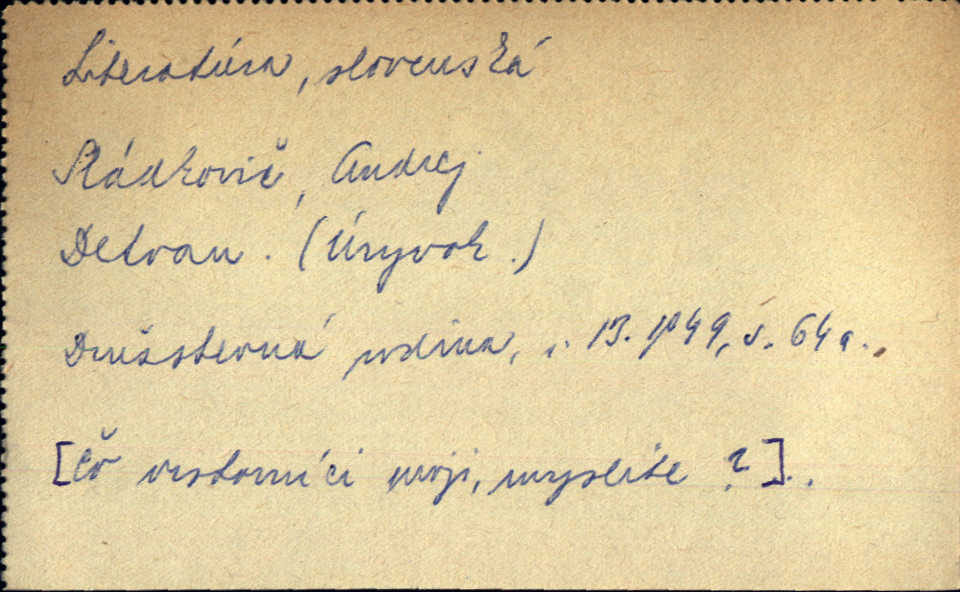 Literatúra, slovenská
Sládkovič, Andrej
Detvan. (Úryvok.)
Družstevná rodina, r. 13. 1949, s. 64a.
[Čo vrstovníci moji, myslíte?].